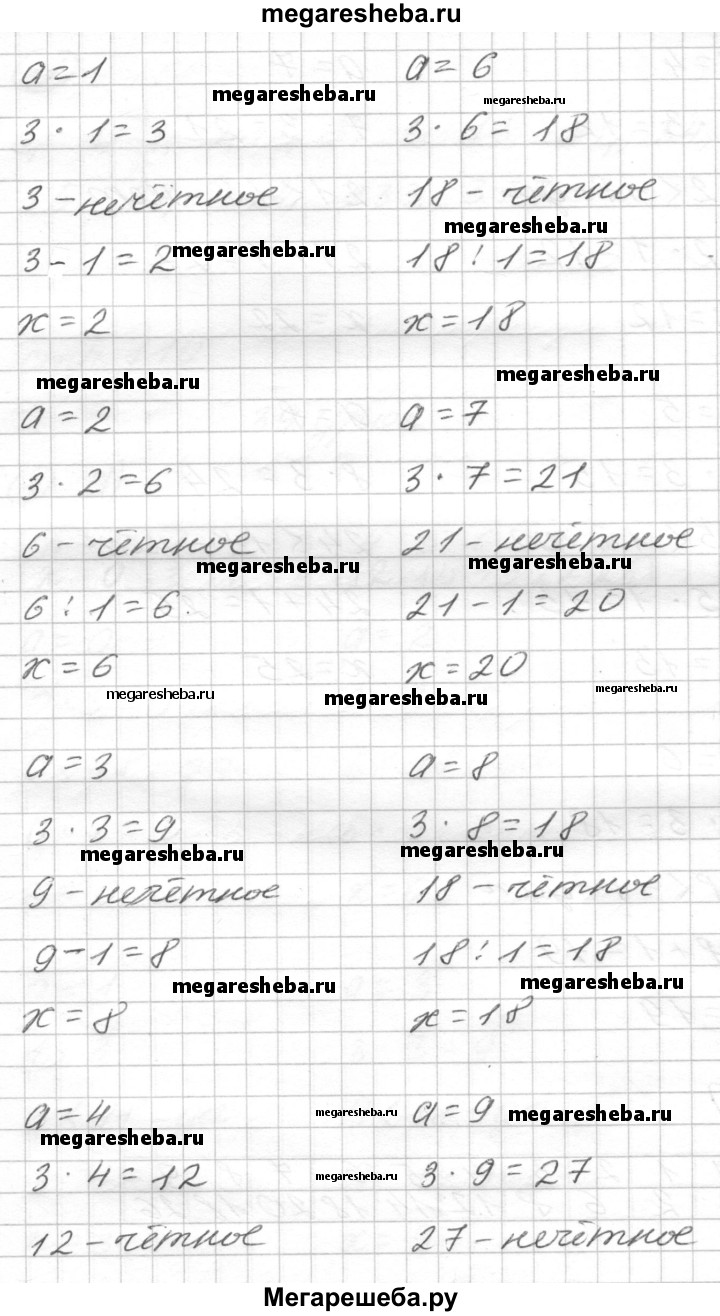 megaresheba.ru
a = 1
megaresheba.ru
3 · 1 = 3
3 – нечётное
3 – 1 = 2
megaresheba.ru
x = 2
a = 6
megaresheba.ru
3 · 6 = 18
18 – чётное
megaresheba.ru
18 : 1 = 18
x = 18
megaresheba.ru
megaresheba.ru
a = 2
3 · 2 = 6
6 – чётное
megaresheba.ru
6 : 1 = 6
x = 6
megaresheba.ru
a = 7
3 · 7 = 21
21 – нечётное
megaresheba.ru
21 – 1 = 20
x = 20
megaresheba.ru
megaresheba.ru
a = 3
3 · 3 = 9
megaresheba.ru
9 – нечётное
9 – 1 = 8
megaresheba.ru
x = 8
a = 8
3 · 8 = 18
megaresheba.ru
18 – чётное
18 : 1 = 18
megaresheba.ru
x = 18
a = 4
megaresheba.ru
3 · 4 = 12
12 – чётное
megaresheba.ru
a = 9
megaresheba.ru
megaresheba.ru
3 · 9 = 27
27 – нечётное
Мегарешеба.ру